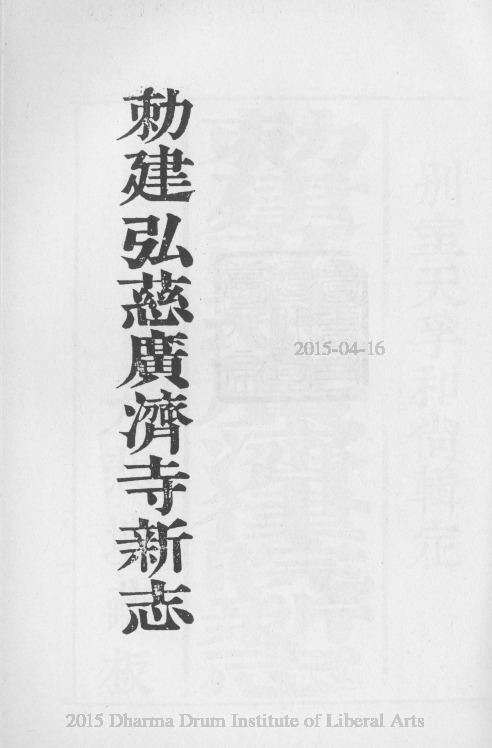 勅建弘慈廣濟寺新志
2015-04-16
2015 Dharma Drum Institute of Liberal Arts